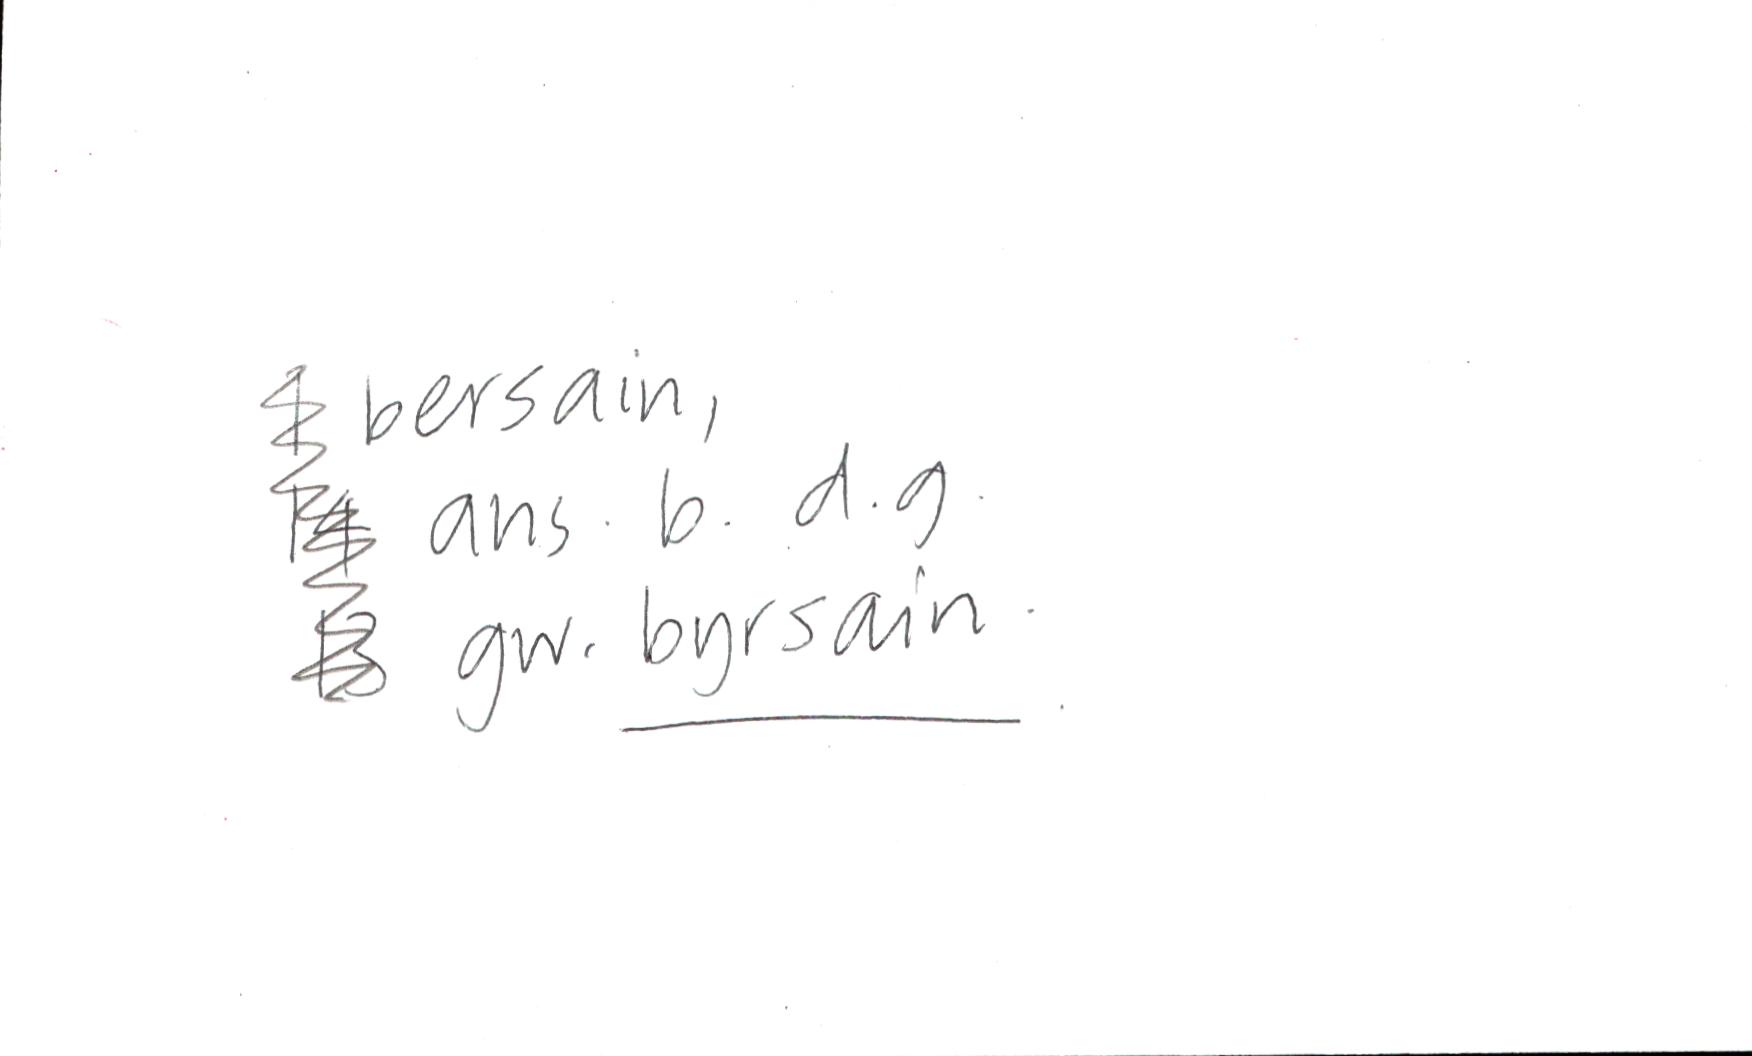 bersain,
ans. b. d.g.
gw. byrsain.